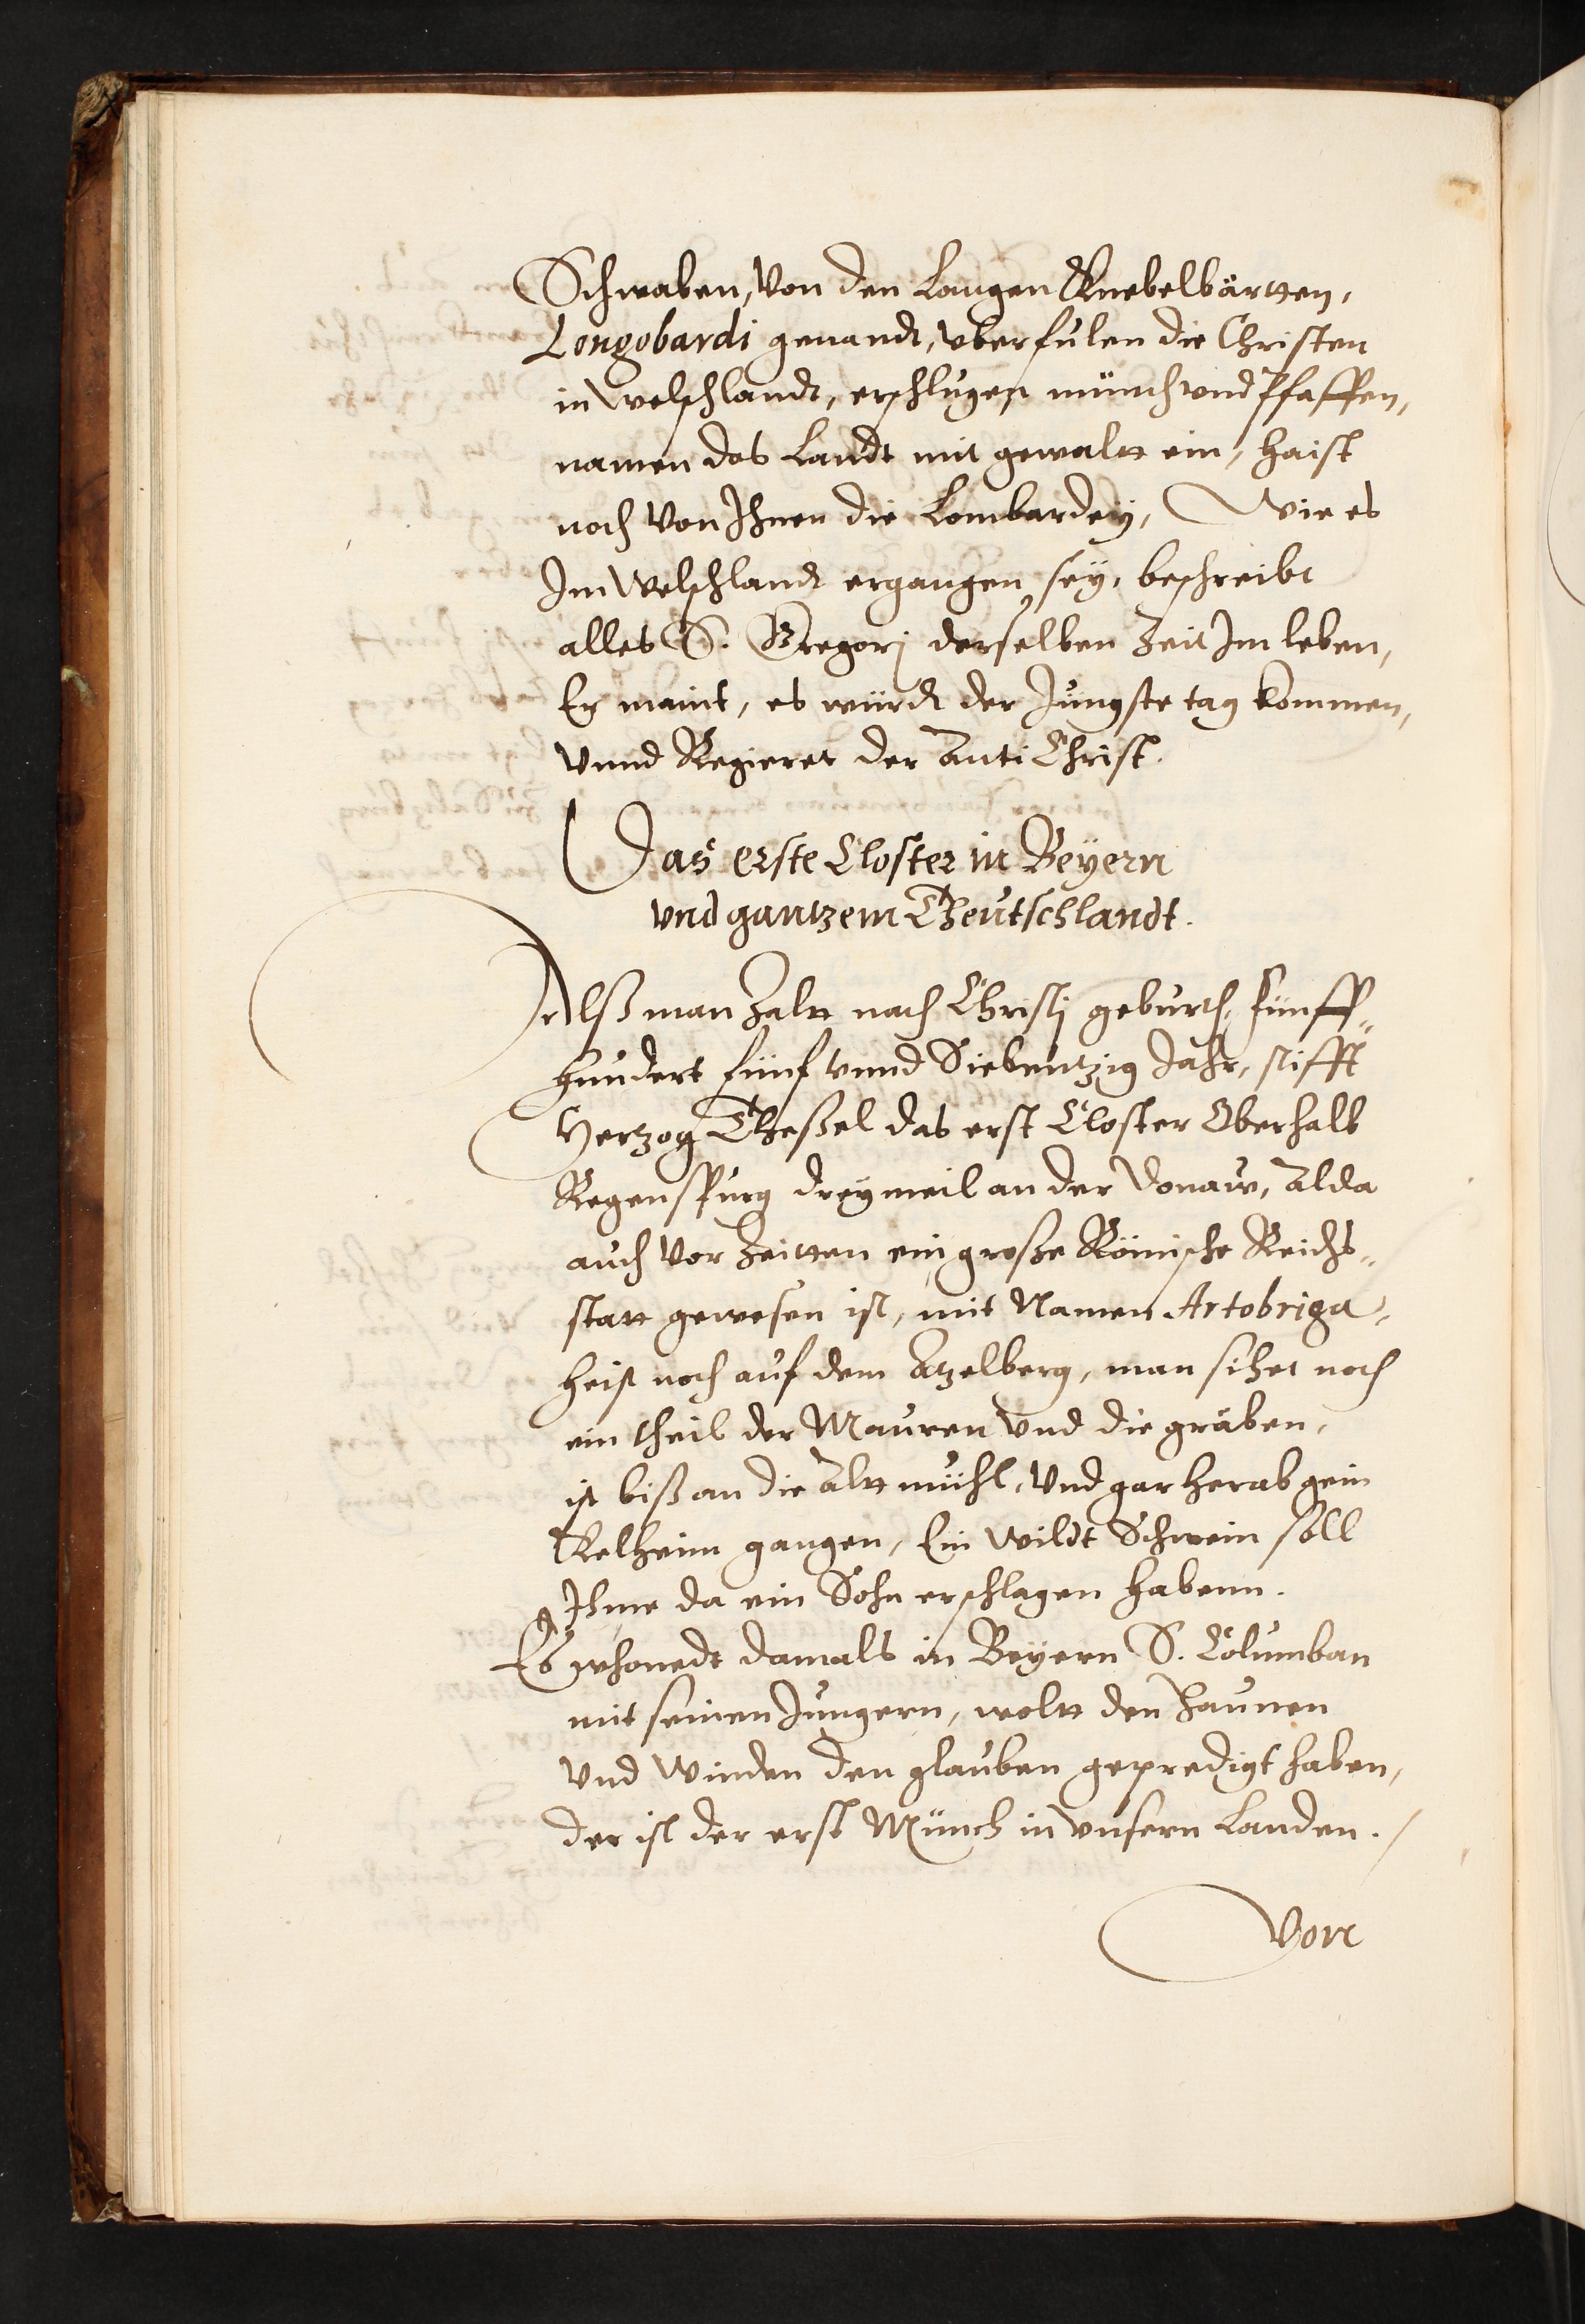 Schwaben, Von den Langen Knebelbärtten,
Longobardi genandt, vberfülen die Christen
in Welschlandt, erschlugen münch vnd Pfaffen,
namen das Landt mit gewaltt ein, haist
noch Von Ihnen die Lombardey, Wie es
Im Welschlandt ergangen sey, beschreibt
alles S. Gregorj derselben Zeit Im leben,
Er maint, es würdt der Jüngste tag kommen,
Vnnd Regieret der Anti Christ.
Das erste Closter in Beyern
vnd gantzem Theutschlandt.
Alß man Zaltt nach Christj geburth, fünff„
hundert fünf vnnd Siebentzig Jahr, stifft
Hertzog Theßel das erst Closter Oberhalb
Regenspurg drey meil an der Donaw, Alda
auch Vor Zeitten ein große Römische Reichs„
statt gewesen ist, mit Namen Artobriga,
heist noch auf dem Atzelberg, man sihet noch
ein theil der Mauren Vnd die gräben,
ist biß an die Altmühl, Vnd gar herab gein
Kelheim gangen, Ein Wildt Schwein soll
Ihme da ein Sohn erschlagen habenn.
Es whonedt damals in Beyern S. Columban
mit seinen Jungern, woltt den Haunen
Vnd Winden den glauben gepredigt haben,
der ist der erst Münch in Vnsern Landen.
Vorr